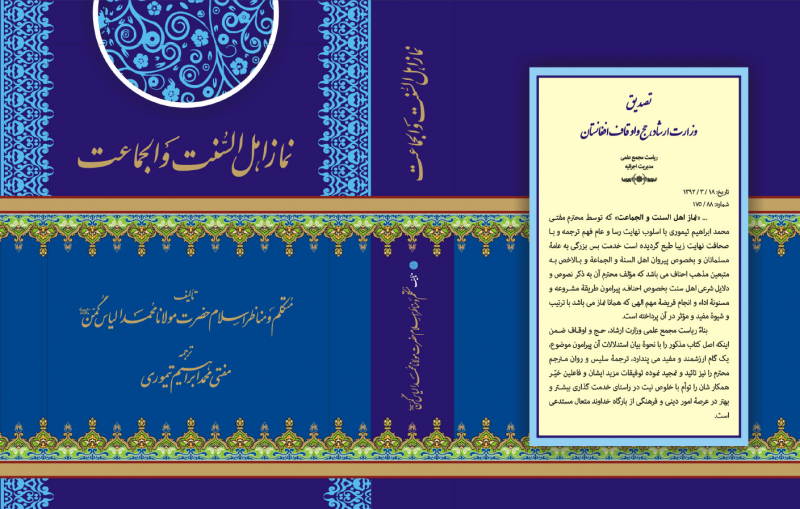 نماز اهل السُنت وَ الجماعت
تألیف
متکلم و مناظر اسلام حضرت مولانا محمد الیاس گھمن
ترجمه
مفتی محمد ابراهیم تیموری
نماز اهل السُنت وَ الجماعت
تألیف
متکلم و مناظر اسلام حضرت مولانا محمد الیاس گھمن
تصدیق
وزارت ارشاد، حج و اوقاف افغانستان
ریاست مجمع علمی
مدیریت اجرائیه
تاریخ: ۱۸ / ۳ / ۱۳۹۲
شماره: ۸۸ / ۱۷۵
... «نماز اهل السنت و الجماعت» که توسط محترم مفتی
محمد ابراهیم تیموری با اسلوب نهایت رسا و عام فهم ترجمه و با
صحافت نهایت زیبا طبع گردیده است خدمت بس بزرگی به عامۀ
مسلمانان و بخصوص پیروان اهل السنة و الجماعة و بالاخص به
متبعین مذهب احناف می باشد که مؤلف محترم آن به ذکر نصوص و
دلایل شرعی اهل سنت بخصوص احناف، پیرامون طریقۀ مشروعه و
مسنونۀ اداء و انجام فریضۀ مهم الهی که همانا نماز می باشد با ترتیب
و شیوۀ مفید و مؤثر در آن پرداخته است.
بناءً ریاست مجمع علمی وزارت ارشاد، حـج و اوقـاف ضـمن
اینکه اصل کتاب مذکور را با نحوۀ بیان استدلالات آن پیرامون موضوع،
یک گام ارزشمند و مفید می پندارد، ترجمۀ سلیس و روان مترجم
محترم را نیز تائید و تمجید نموده توفیقات مزید ایشان و فاعلین خیّر
همکار شان را توأم با خلوص نیت در راستای خدمت گذاری بیشتر و
بهتر در عرصۀ امور دینی و فرهنگی از بارگاه خداوند متعال مستدعی
است.